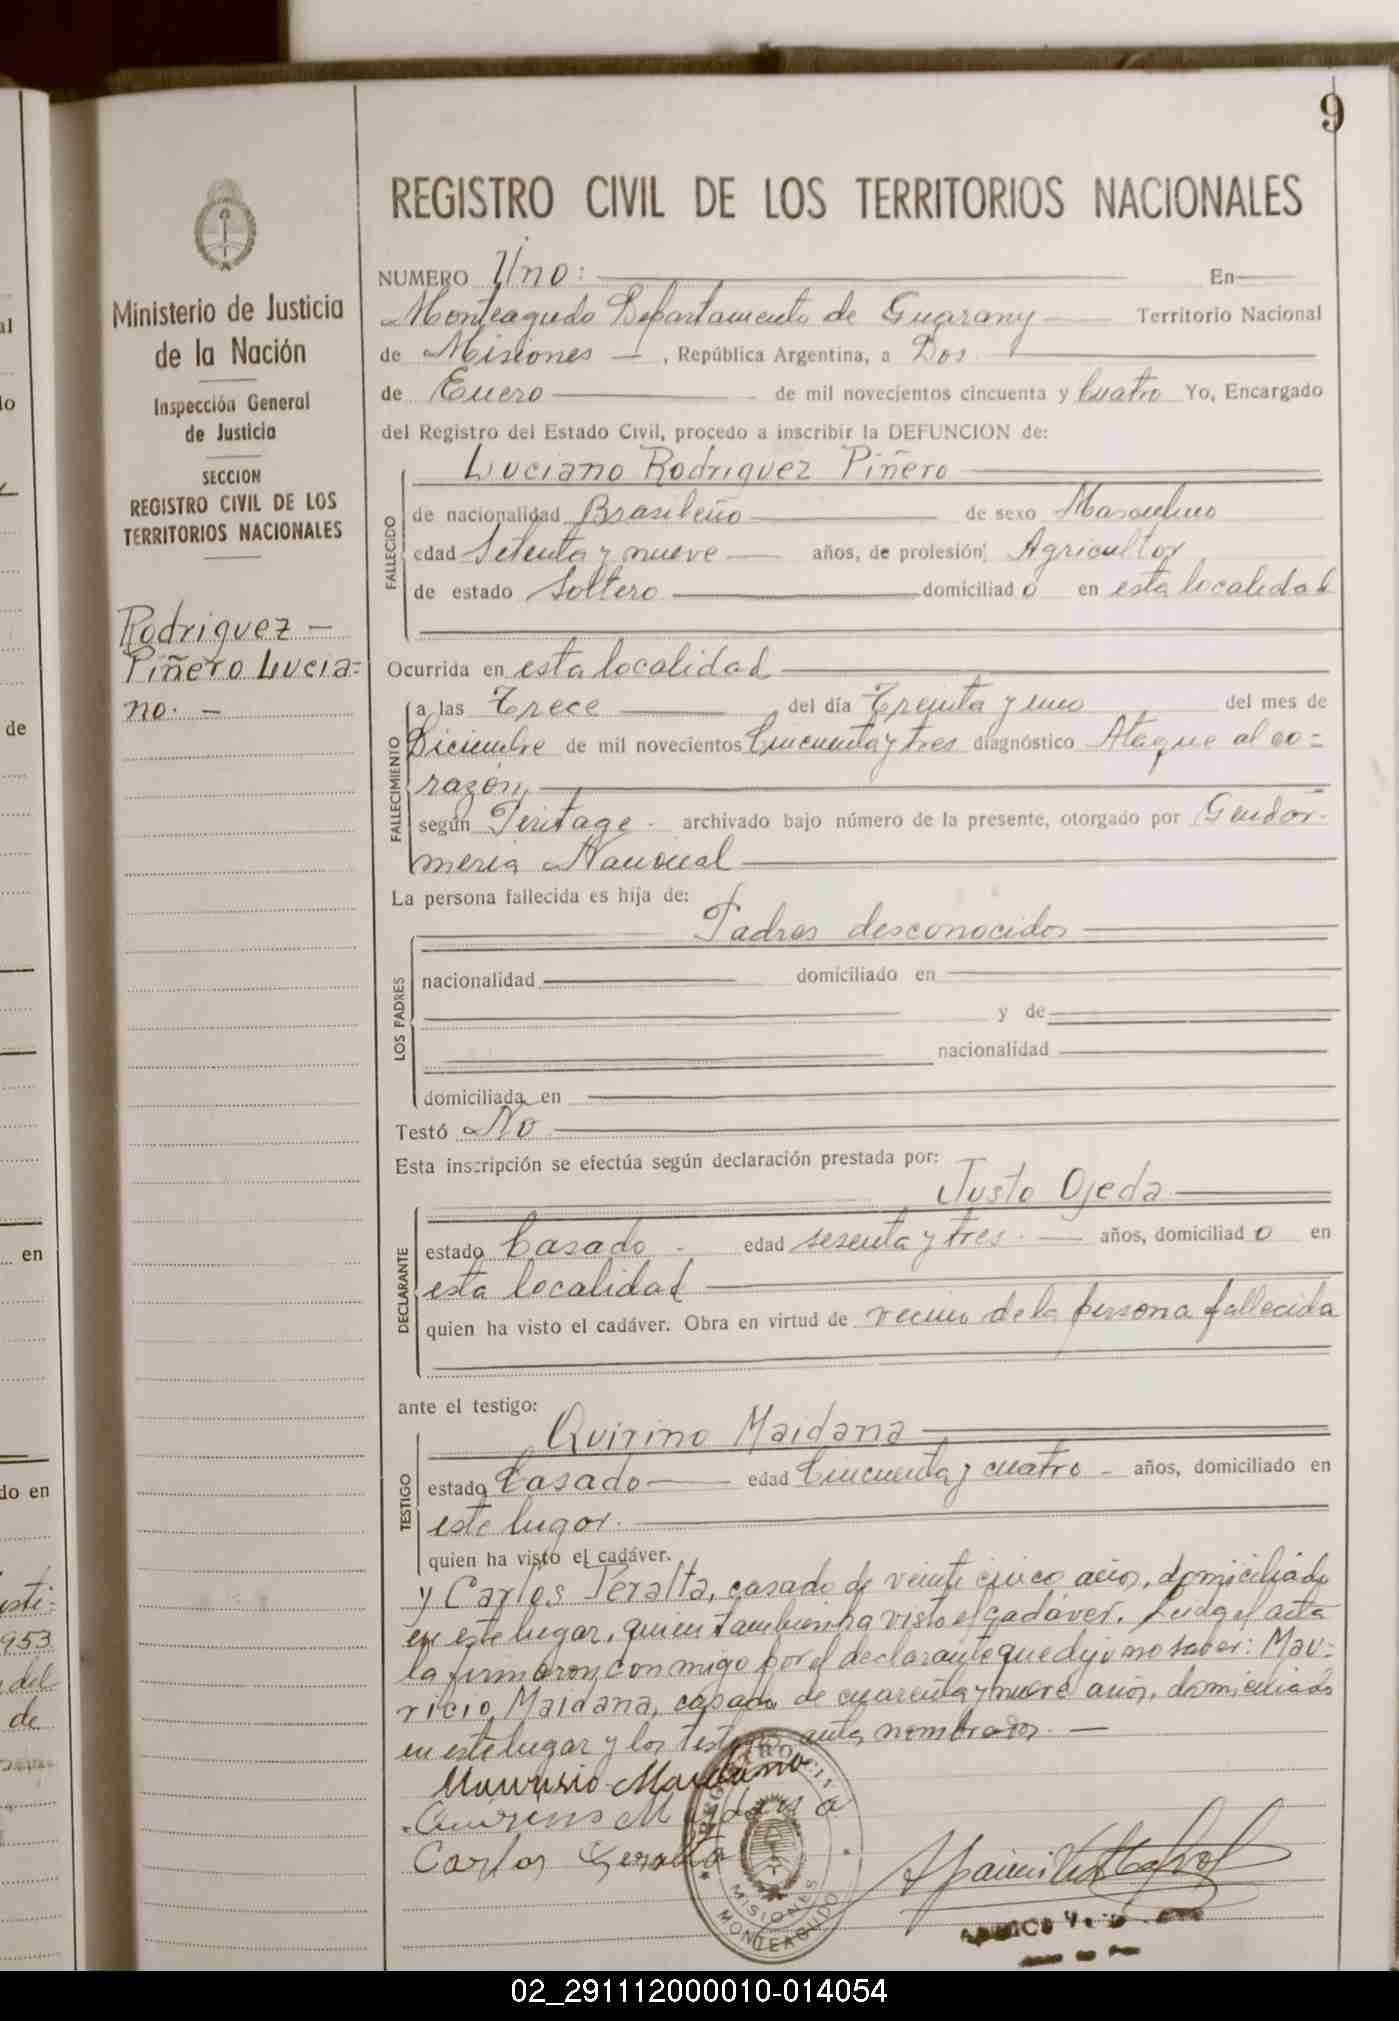 9
Ministerio de Justicia
de la Nación
Inspección General
de Justicia
SECCION
REGISTRO CIVIL DE LOS
TERRITORIOS NACIONALES
Rodriguez —
Piñero Lucia=
no. —
REGISTRO CIVIL DE LOS TERRITORIOS NACIONALES
NUMERO Uno: En
Monteagudo Departamento de Guarany Territorio Nacional
de Misiones — , República Argentina, a Dos
de Enero de mil novecientos cincuenta y Cuatro Yo, Encargado
del Registro del Estado Civil, procedo a inscribir la DEFUNCION de:
FALLECIDO
Luciano Rodriguez Piñero
de nacionalidad Brasileño de sexo Masculino
edad Setenta y nueve años, de profesión Agricultor
de estado Soltero domiciliado en esta localidad
Ocurrida en esta localidad
FALLECIMIENTO
a las Trece del día Treinta y uno del mes de
Diciembre de mil novecientos Cincuenta y tres diagnóstico Ataque al co=
razón,
según Peritage - archivado bajo número de la presente, otorgado por Gendar-
meria Nacional
La persona fallecida es hija de:
LOS PADRES
Padres desconocidos
nacionalidad domiciliado en
y de
nacionalidad
domiciliada en
Testó No
Esta inscripción se efectúa según declaración prestada por:
DECLARANTE
Justo Ojeda
estado Casado - edad sesenta y tres. — años, domiciliado en
esta localidad
quien ha visto el cadáver. Obra en virtud de vecino de la persona fallecida
ante el testigo:
TESTIGO
Quirino Maidana
estado Casado edad Cincuenta y cuatro - años, domiciliado en
este lugar.
quien ha visto el cadáver.
y Carlos Peralta, casado de veinte cinco años, domiciliado
en este lugar, quien tambien ha visto el cadáver. Leida el acta
la firmaron conmigo por el declarante que dijo no saber: Mau=
ricio Maidana, casado de cuarenta y nueve años, domiciliado
en este lugar y los testigos antes nombrados. —
Mauricio Maidana
Quirino Maidana
Carlos Peralta
REGISTRO CIVIL
MISIONES
MONTEAGUDO
al
lo
de
en
do en
953
del
de
02_291112000010-014054